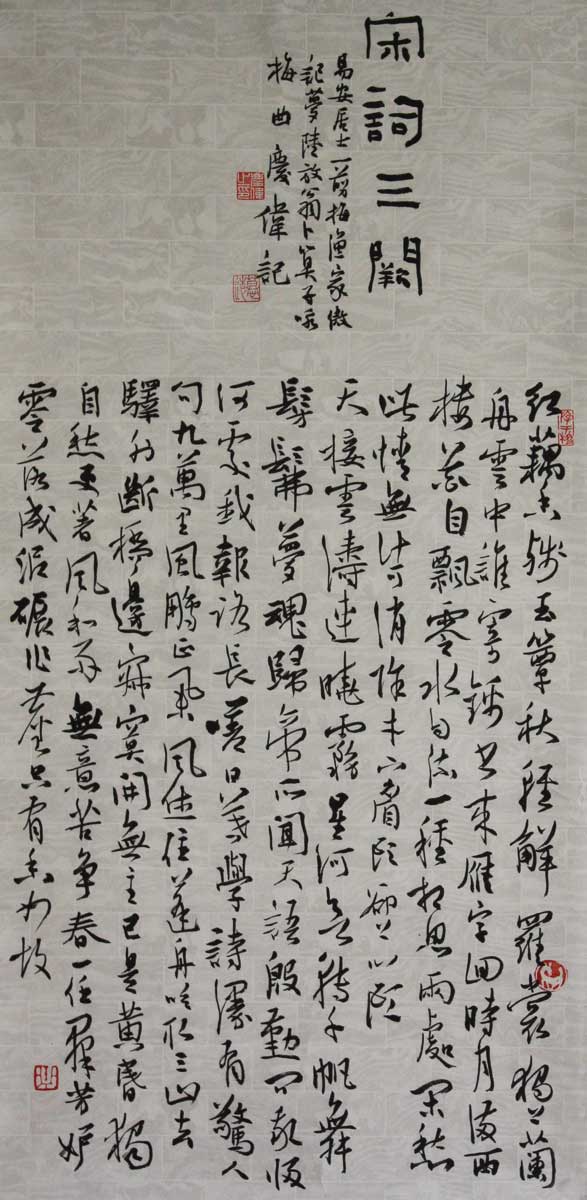 宋詞三闕
易安居士一剪梅漁家傲
記夢陸放翁卜算子咏
梅曲慶偉記
紅藕香殘玉簟秋輕解羅裳獨上蘭
舟雲中誰寄錦書來雁字回時月滿西
樓花自飄零水自流一種相思兩處閑愁
此情無計可消除才下眉頭卻上心頭
天接雲濤連曉霧星河欲轉千帆舞
髣髴夢魂歸帝所聞天語殷勤問我歸
何處我報路長嗟日暮學詩漫有驚人
句九萬里風鵬正舉風休住蓬舟吹取三山去
驛外斷橋邊寂寞開無主已是黃昏獨
自愁更著風和雨無意苦爭春一任群芳妒
零落成泥碾作塵只有香如故